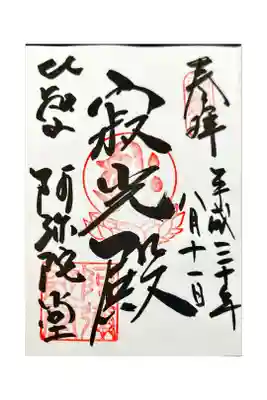 奉拝
平成三十年
八月十一日
寂光殿
阿弥陀堂